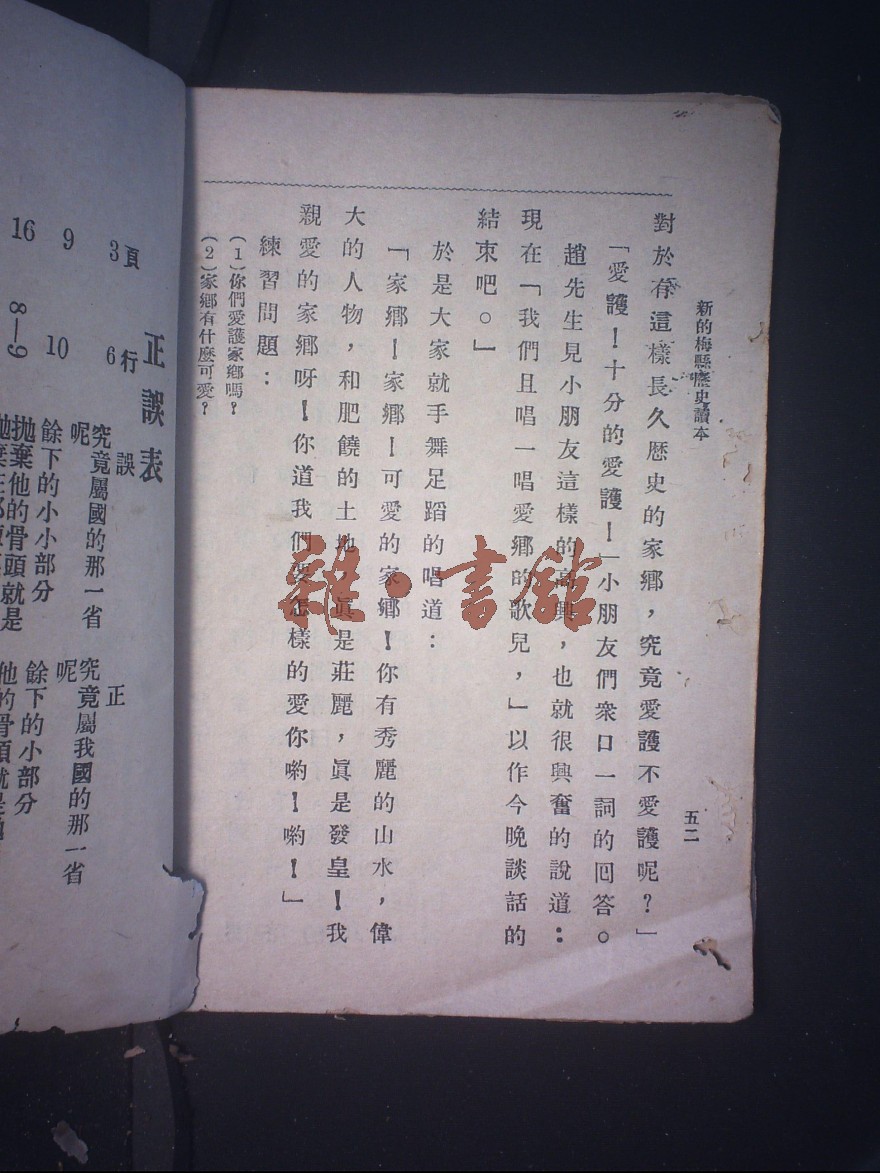 新的梅縣歷史讀本
五二
對於有這樣長久歷史的家鄉，究竟愛護不愛護呢？」
「愛護！十分的愛護！」小朋友們衆口一詞的囘答。
趙先生見小朋友這樣的高興，也就很興奮的說道：
現在「我們且唱一唱愛鄉的歌兒，」以作今晚談話的
結束吧。」
於是大家就手舞足蹈的唱道：
「家鄉！家鄉！可愛的家鄉！你有秀麗的山水，偉
大的人物，和肥饒的土地，眞是莊麗，眞是發皇！我
親愛的家鄉呀！你道我們要怎樣的愛你喲！喲！」
練習問題：
(1)你們愛護家鄉嗎？
(2)家鄉有什麼可愛？
雜·書館
正誤表
頁 行 誤 正
3 6 究竟屬國的那一省 究竟屬我國的那一省
呢 呢
9 10 餘下的小小部分 餘下的小部分
16 8—9 拋棄他的骨頭就是